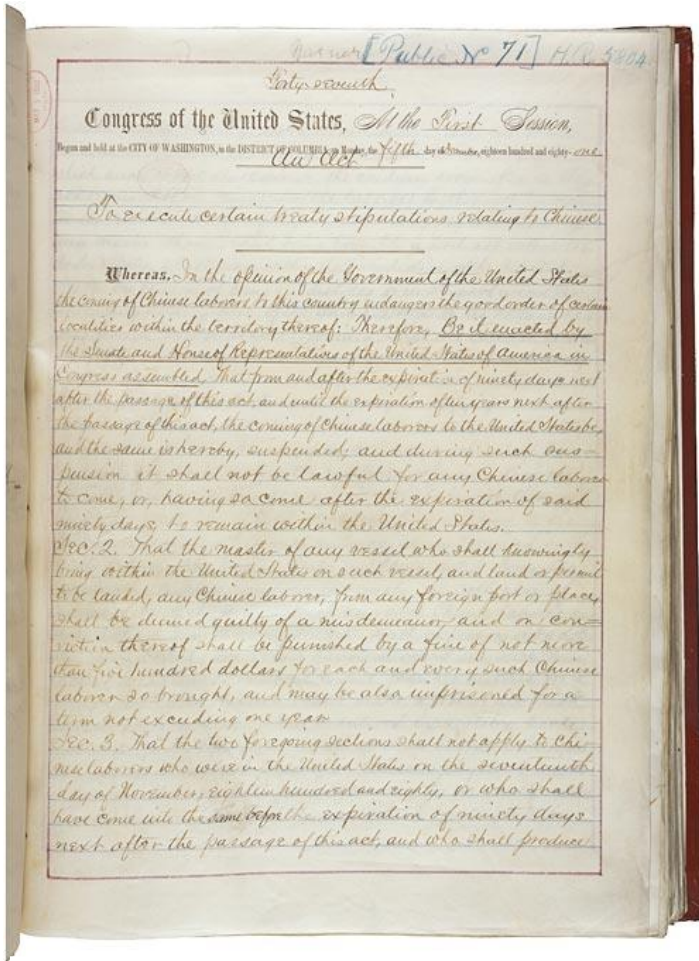 [Public No 71] H.R. 5804.
Forty-seventh
Congress of the United States, At the First Session,
Begun and held at the CITY OF WASHINGTON, in the DISTRICT OF COLUMBIA, on Monday, the fifth day of December, eighteen hundred and eighty-one
An Act
To execute certain treaty stipulations relating to Chinese.
Whereas, In the opinion of the Government of the United States
the coming of Chinese laborers to this country endangers the good order of certain
localities within the territory thereof: Therefore, Be it enacted by
the Senate and House of Representatives of the United States of America in
Congress assembled, That from and after the expiration of ninety days next
after the passage of this act, and until the expiration of ten years next after
the passage of this act, the coming of Chinese laborers to the United States be,
and the same is hereby, suspended; and during such sus-
pension it shall not be lawful for any Chinese laborer
to come, or, having so come after the expiration of said
ninety days, to remain within the United States.
Sec. 2. That the master of any vessel who shall knowingly
bring within the United States on such vessel, and land or permit
to be landed, any Chinese laborer, from any foreign port or place,
shall be deemed guilty of a misdemeanor, and on con=
viction thereof shall be punished by a fine of not more
than five hundred dollars for each and every such Chinese
laborer so brought, and may be also imprisoned for a
term not exceeding one year.
Sec. 3. That the two foregoing sections shall not apply to Chi-
nese laborers who were in the United States on the seventeenth
day of November, eighteen hundred and eighty, or who shall
have come into the same before the expiration of ninety days
next after the passage of this act, and who shall produce